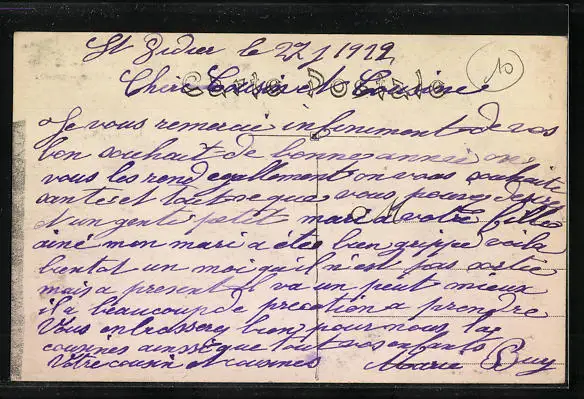 St Didier le 22 J 1922
10
Carte Postale
Chère Cousin et Cousine
Je vous remerai infiniment de vos
bon souhait de bonne année on
vous les rend egallement on vous souhaite
santé et tout se que vous pouvez
et un gent petit mari a votre filles
ainé mon mari a étés bien grippe voila
bientot un moi qu'il n'est pas sortie
mais a present il va un peut mieux
il a beaucoup de precotion a prendre
Vous enbrasserez bien pour nous la
cousines ainssé que tout vos enfants
Votre cousin et cousines Marie Buy